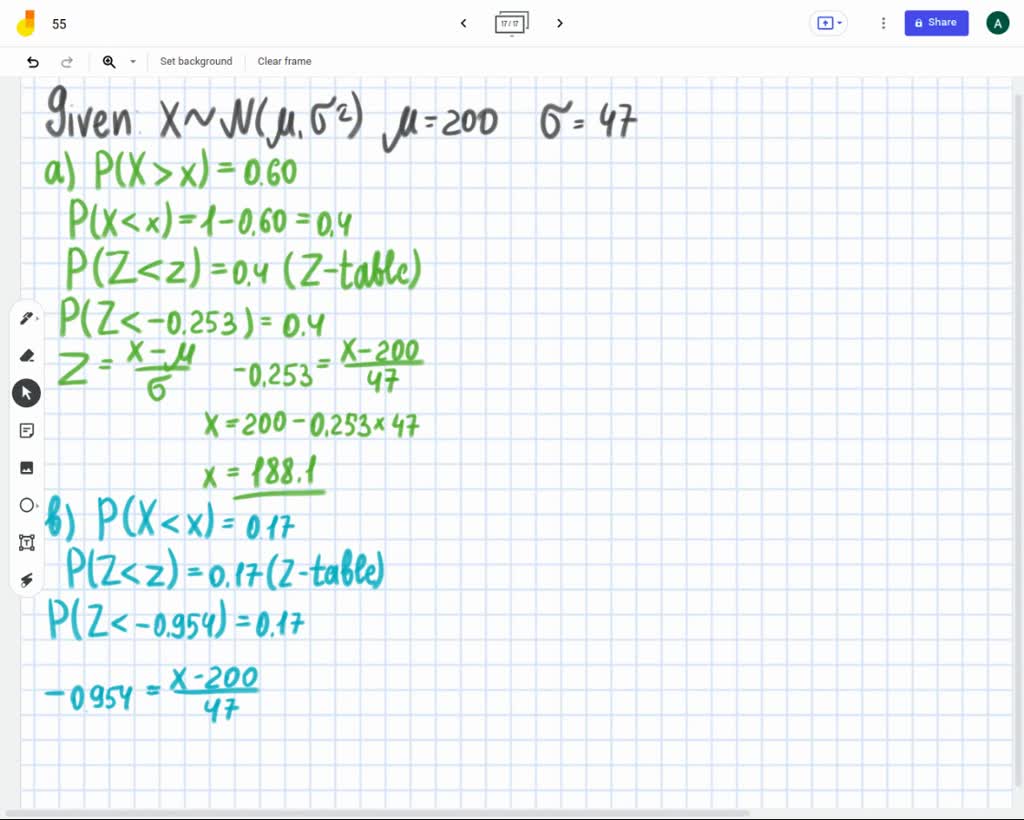 55
17 / 17
Share
A
Set background
Clear frame
Given: X~N(μ, σ²) μ=200 σ=47
a) P(X>x)=0.60
P(X<x)=1-0.60=0,4
P(Z<z)=0.4 (Z-table)
P(Z<-0.253)=0.4
Z = (x-μ)/σ -0,253 = (x-200)/47
x=200-0,253×47
x = 188.1
b) P(X<x)=0.17
P(Z<z)=0.17(Z-table)
P(Z<-0.954)=0.17
-0.954 = (x-200)/47